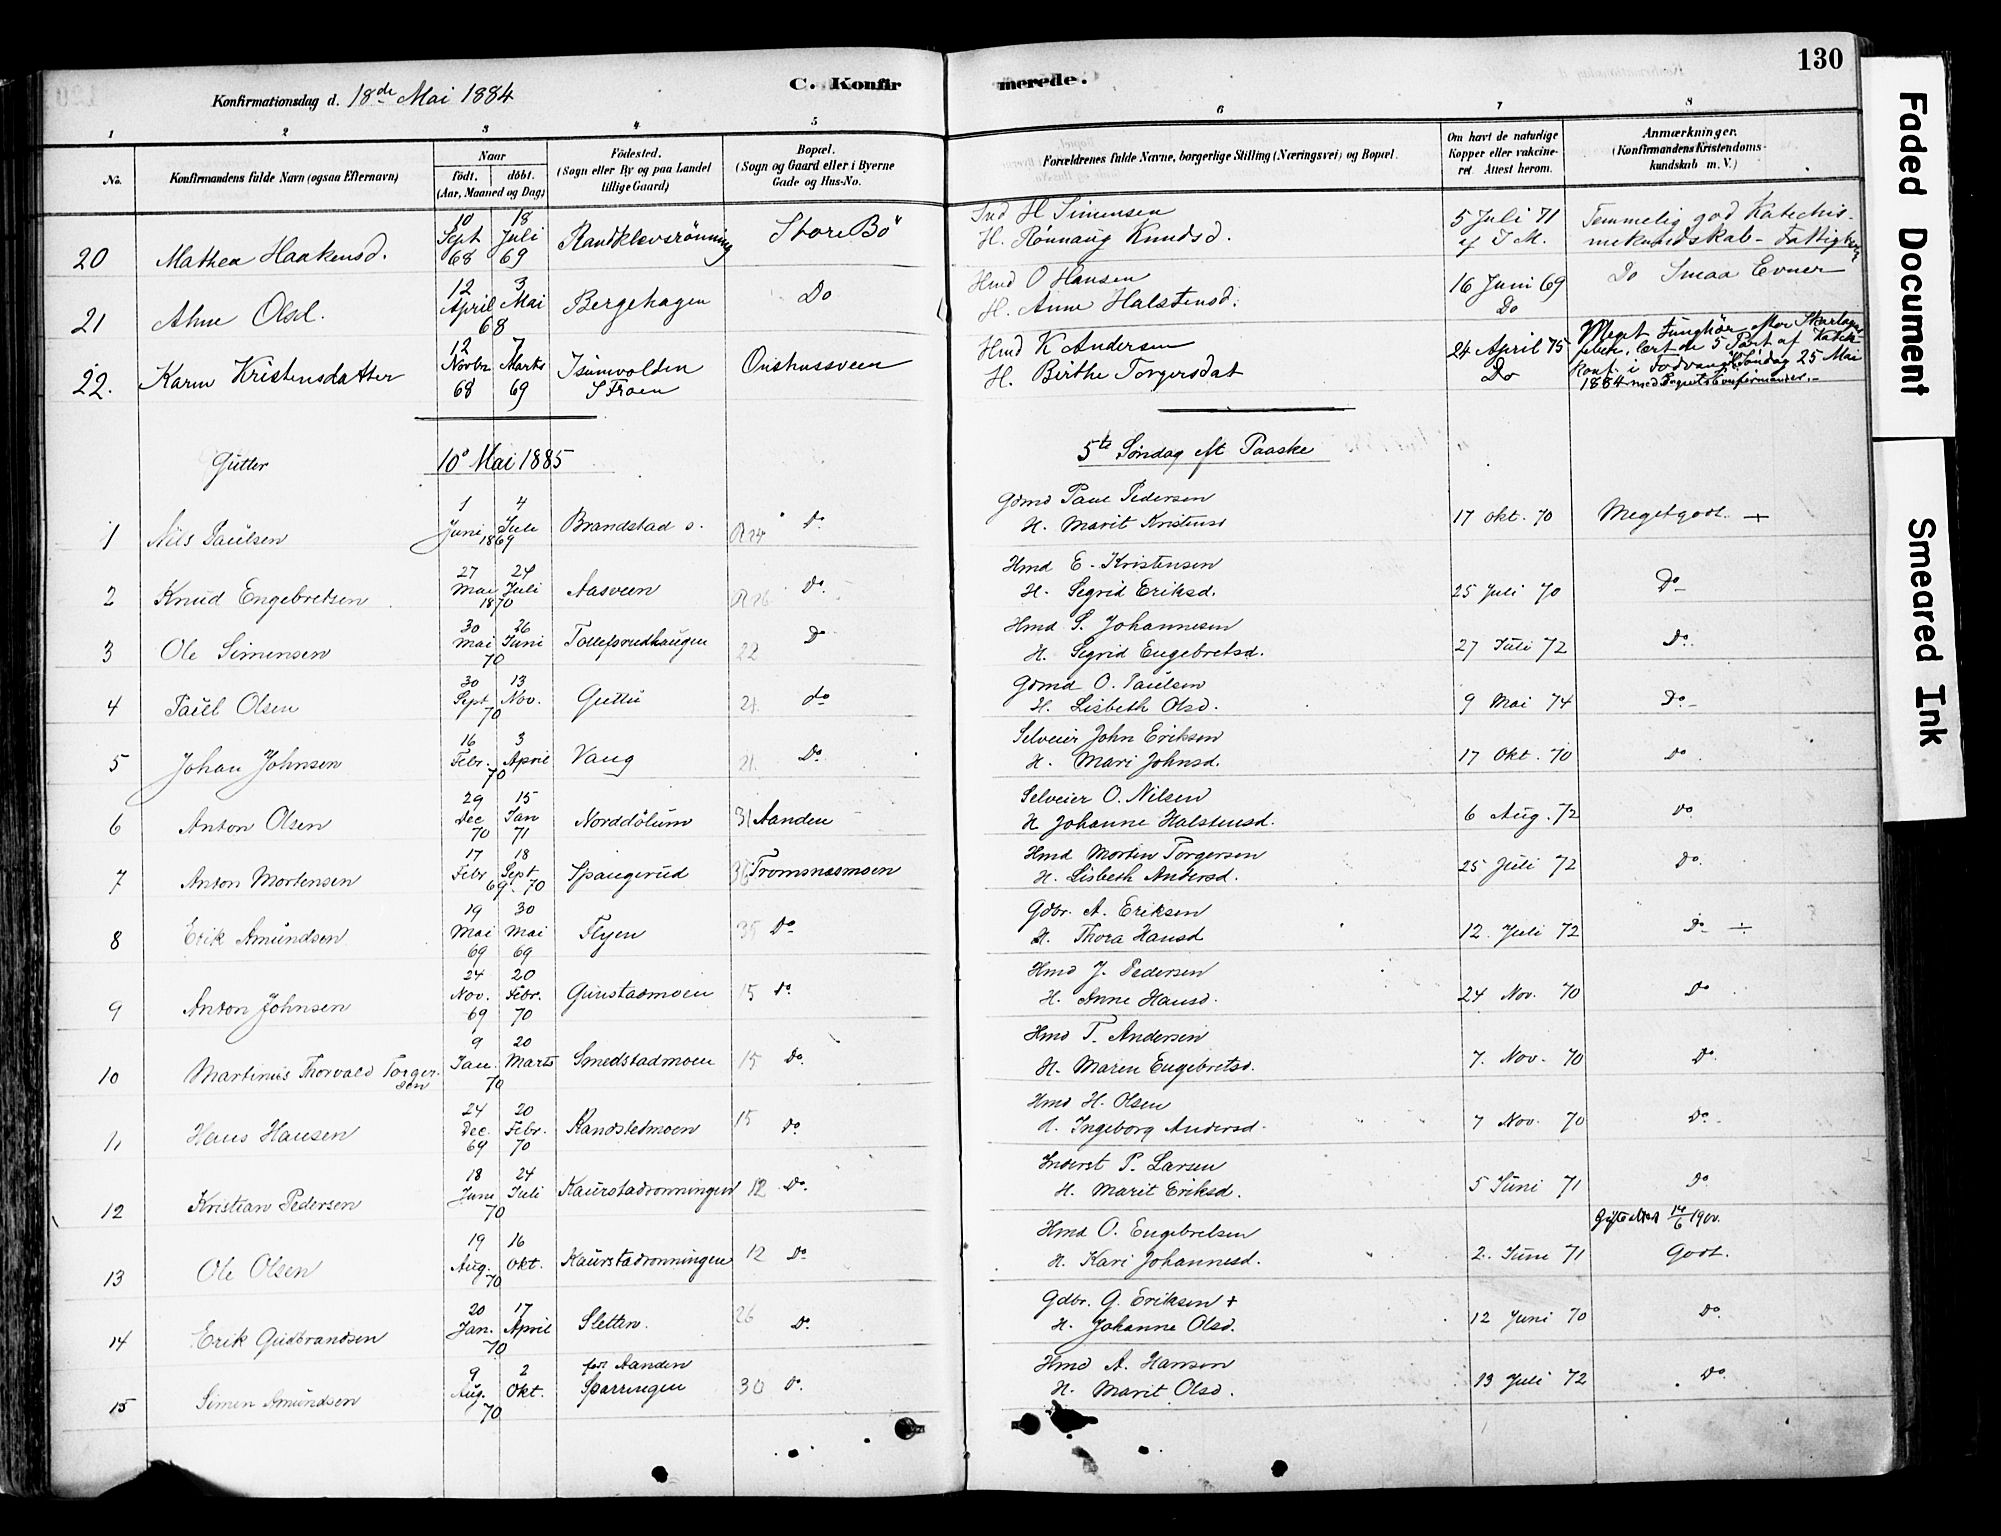 130
Faded Document
Smeared Ink
Konfirmationsdag d. 18de Mai 1884
C. Konfirmerede.
1 2 3 4 5 6 7 8
No.
Konfirmandens fulde Navn (ogsaa Efternavn)
Naar
født. døbt.
(Aar, Maaned og Dag)
Fødested.
(Sogn eller By og paa Landet
tillige Gaard)
Bopæl.
(Sogn og Gaard eller i Byerne
Gade og Hus-No.
Forældrenes fulde Navne, borgerlige Stilling (Næringsvei) og Bopæl.
Om havt de naturlige
Kopper eller vakcine-
ret. Attest herom.
Anmærkninger.
(Konfirmandens Kristendoms-
kundskab m. V.)
20 Mathea Haakensd. 10 Sept 68 18 Juli 69 Randklevsrönning Store Bö
H Simensen
H. Rönnaug Knudsd. 5 Juli 71 af
Temmelig god Katechis-
mekundskab -
21 Olsd. 12 April 3 Mai 68 Bergehagen Do
Hmd O Hansen
H. Anne Halstensd. 16 Juni 69 Do
Do Smaa Evner
22. Karin Kristensdatter 12 Novbr 68 7 Marts 69 Isumvolden S Froen
Hmd K Andersen
H. Birthe Torgersdat 24 April 75 Do
Meget
5 Part af
Söndag 25 Mai
1884 med
Gutter 10 Mai 1885 5te Söndag eft Paaske
1 Nils Paulsen 1 Juni 4 Juli 1869 Brandstad s. Do
Gdmd Paul Pedersen
H. Marit Kristensd 17 Okt. 70 Meget godt. +
2 Knud Engebretsen 27 Mai 24 Juli 1870 Aasveen Do
Hmd E. Kristensen
H. Sigrid Eriksd. 25 Juli 70 Do
3 Ole Simensen 30 Mai 26 Juni 70 Tollefsrudhaugen 22 Do
Hmd S. Johannesen
H. Sigrid Engebretsd. 27 Juli 72 Do.
4 Paul Olsen 30 Sept 13 Nov. 70 Guttu 21. do
Gdmd O. Paulsen
H. Lisbeth Olsd. 9 Mai 74 Do
5 Johan Johnsen 16 Febr. 3 April 70 Vang 21. Do
Selveier John Eriksen
H. Mari Johnsd. 17 Okt. 70 Do
6 Anton Olsen 29 Dec 70 15 Jan 71 Norddölum 31 Aanden
Selveier O. Nilsen
H Johanne Halstensd. 6 Aug. 72 Do
7 Anton Mortensen 17 Febr 69 18 Sept. 70 Spangerud 36 Tromsnæsmoen
Hmd Morten Torgersen
H. Lisbeth Andersd. 25 Juli 72 Do.
8 Erik Amundsen 19 Mai 69 30 Mai 69 Flyen 35 Do
Gdbr. A. Eriksen
H. Thora Hansd 12. Juli 72 Do ÷
9 Anton Johnsen 24 Nov. 69 20 Febr. 70 Gunstadmoen 15 Do.
Hmd J. Pedersen
H. Anne Hansd. 24 Nov. 70 Do
10 Martinus Thorvald Torger-
sen 9 Jan. 20 Marts 70 Smedstadmoen 15 Do.
Hmd T. Andersen
H. Maren Engebretsd. 7. Nov. 70 Do.
11 Hans Hansen 24 Dec. 69 20 Febr. 70 Randstedmoen 15 Do.
Hmd H. Olsen
H. Ingeborg Andersd. 7 Nov. 70 Do.
12 Kristian Pedersen 18 Juni 24 Juli 70 Kaurstadronningen 12 Do.
Inderst P. Larsen
H. Marit Eriksd. 5 Juni 71 Do
13 Ole Olsen 19 Aug. 16 Okt. 70 Kaurstadronningen 12 Do
Hmd O. Engebretsen
H. Kari Johannesd. 2. Juni 71
14/6 1900.
Godt.
14 Erik Gudbrandsen 20 Jan. 17 April 70 Sletten. 26 Do.
Gdbr. G. Eriksen +
H. Johanne Olsd. 12 Juni 70 Do
15 Simen Amundsen 9 Aug. 2 Okt. 70 Aanden
Sparringen 30 Do.
Hmd A. Hansen
H. Marit Olsd. 13 Juli 72 Do